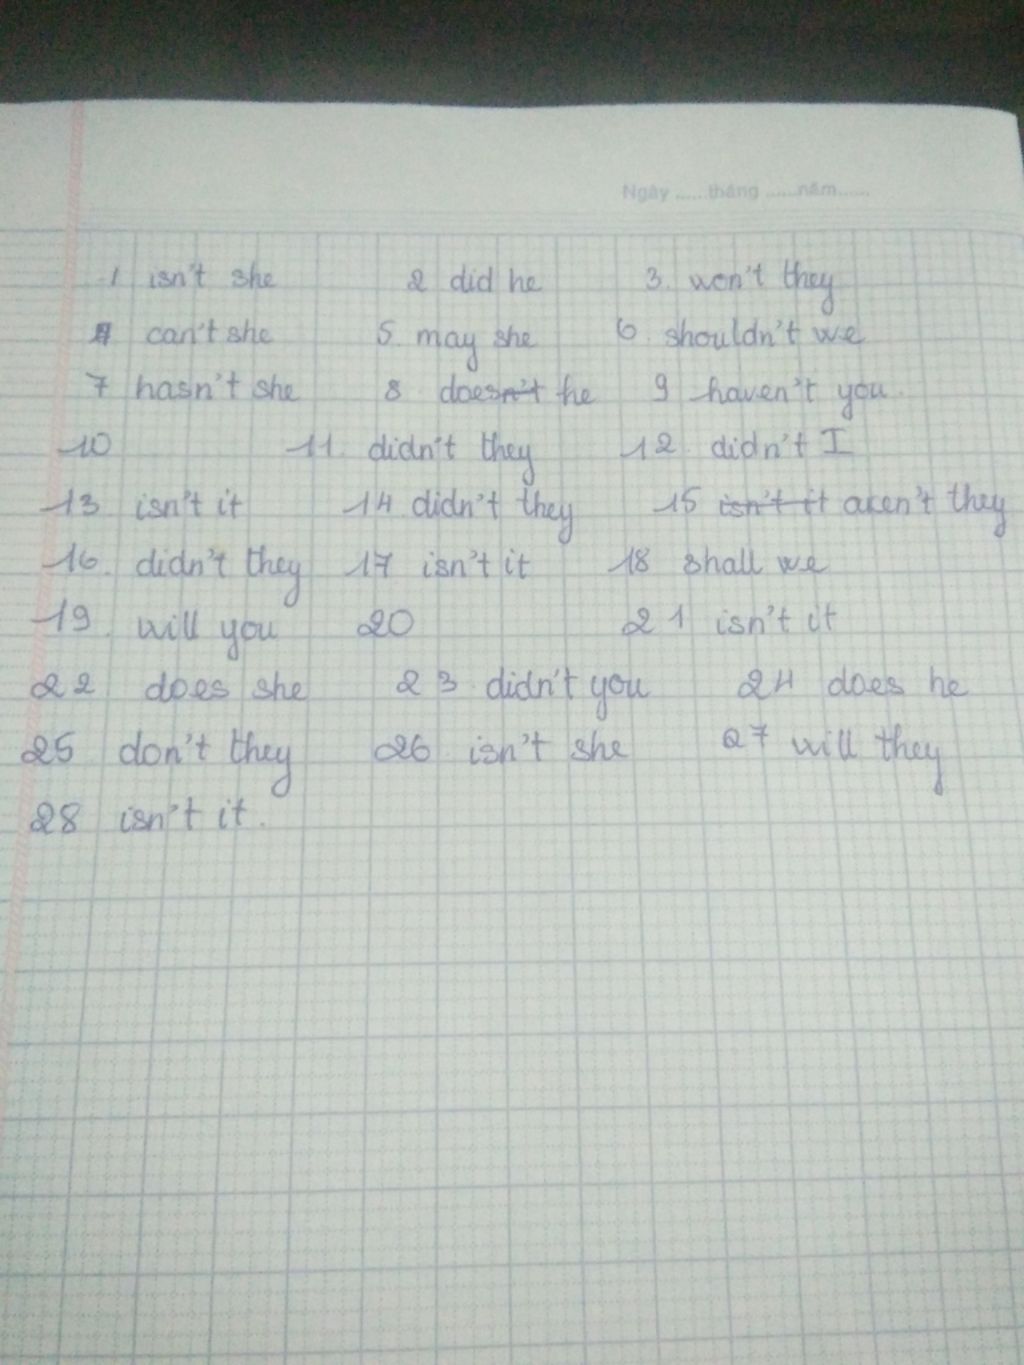 Ngày ......tháng ......năm......
1 isn't she 2 did he 3. won't they
4 can't she 5. may she 6. shouldn't we
7 hasn't she 8 doesn't he 9 haven't you.
10 11. didn't they 12. didn't I
13 isn't it 14 didn't they 15 isn't it aren't they
16. didn't they 17 isn't it 18 shall we
19. will you 20 21 isn't it
22 does she 23. didn't you 24 does he
25 don't they 26 isn't she 27 will they
28 isn't it.